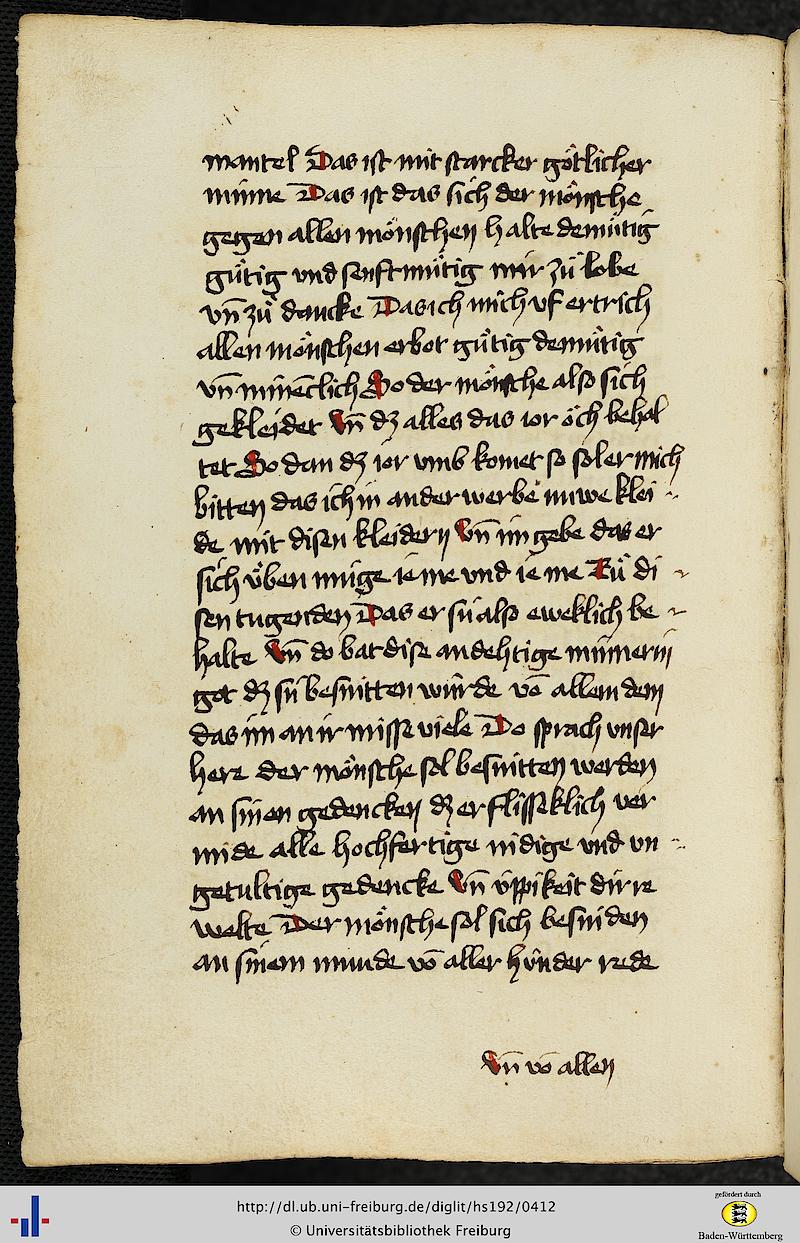 mantel Das ist mit starcker gôtlicher
minne Das ist das sich der mônsche
gegen allen mônschen halte demûtig
gûtig vnd senftmûtig mir zů lobe
vn̄ zů dancke Das ich mich vf ertrich
allen mônschen erbot gûtig demûtig
vn̄ minēclich So der mônsche also sich
gekleidet Vn̄ dz alles das ior ôch behal
tet So dan dz ior vmb komet so sol er mich
bitten das ich in ander werbe nuwe klei
de mit disen kleidern Vn̄ im gebe das er
sich ûben muge ie me vnd ie me Zů di
sen tugenden Das er sú also eweklich be
halte Vn̄ do bat dise andehtige minnerin
got dz sú besnitten wúrde vō allem dem
das im an ir misse viele Do sprach vnser
here der mônsche sol besnitten werden
an sinen gedencken dz er flisseklich ver
mide alle hochfertige nidige vnd vn
getultige gedencke Vn̄ úppikeit dirre
welte Der mônsche sol sich besniden
an sinem munde vō aller hinder rede
Vn̄ vō allen
http://dl.ub.uni-freiburg.de/diglit/hs192/0412
© Universitätsbibliothek Freiburg
gefördert durch
Baden-Württemberg